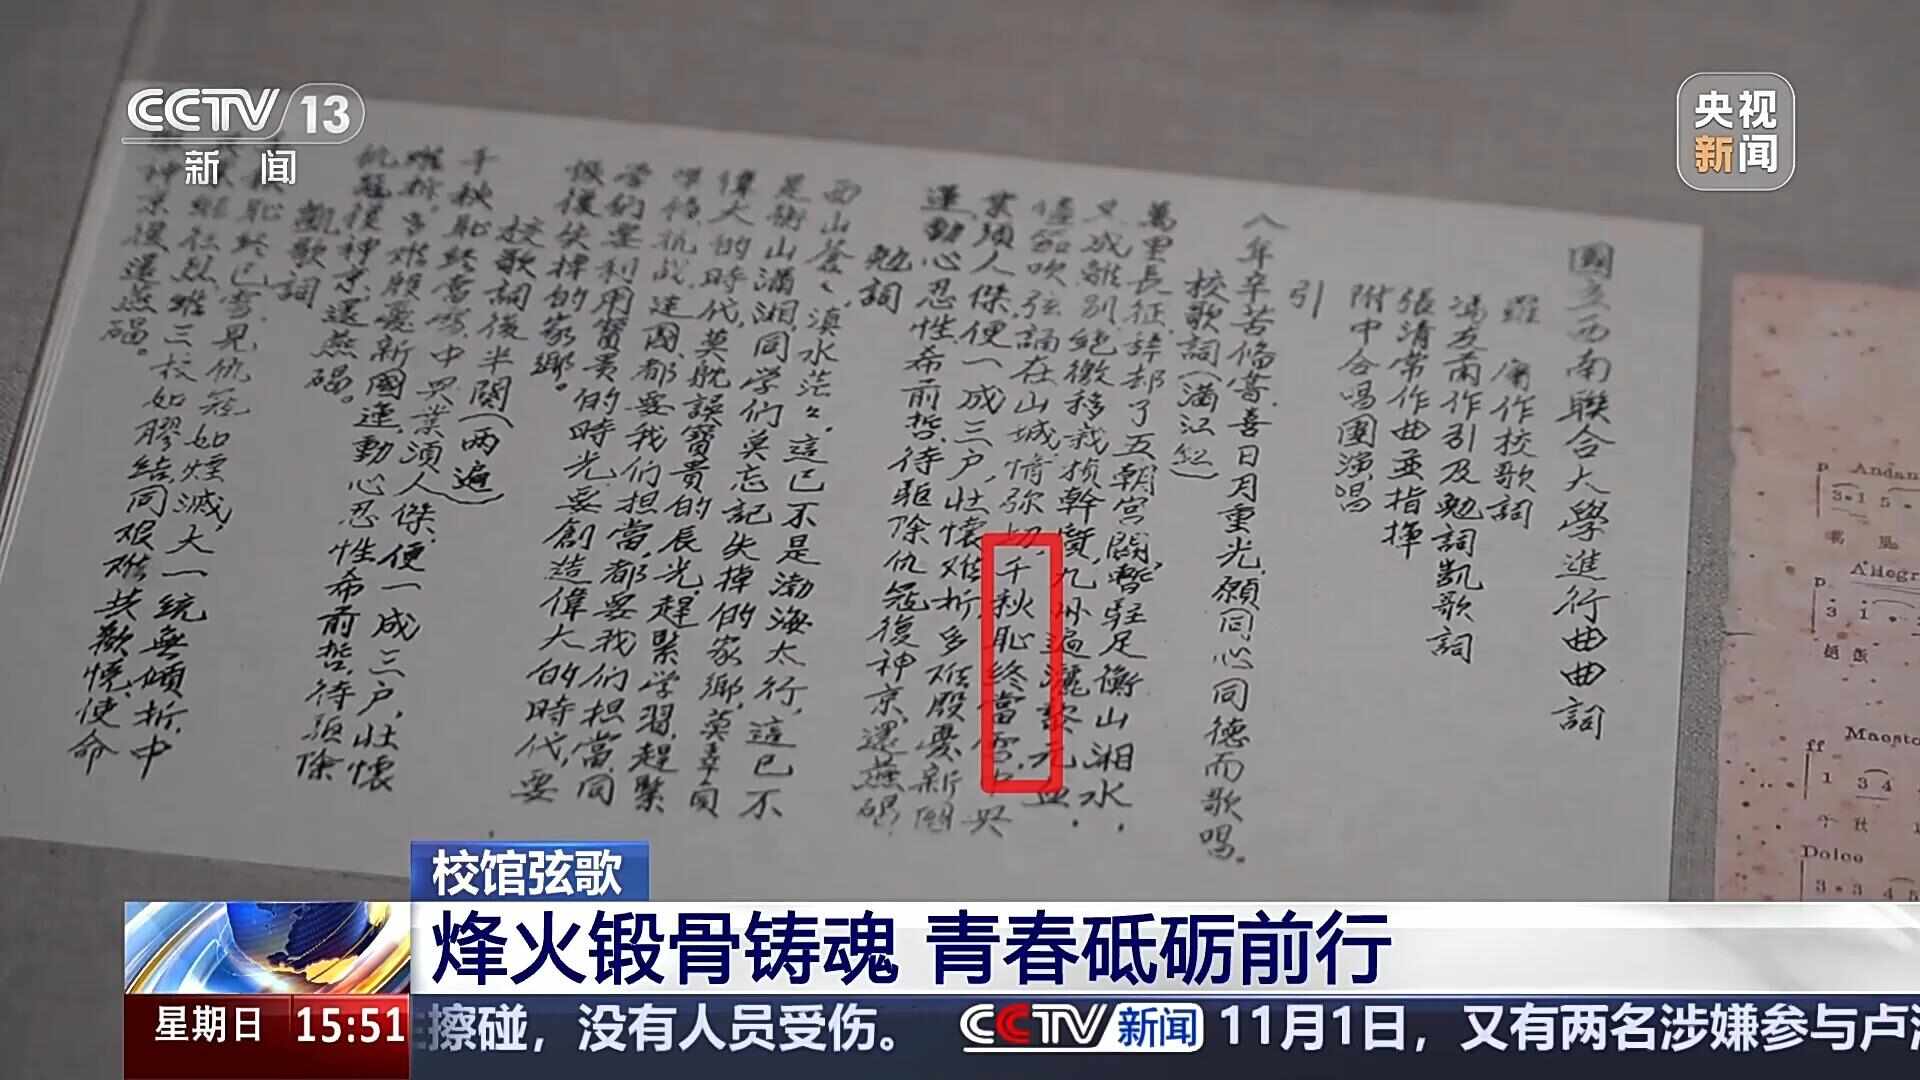 CCTV 13
新闻
央视
新闻
國立西南聯合大學進行曲曲詞
羅庸作校歌詞
馮友蘭作引及勉詞凱歌詞
張清常作曲並指揮
附中合唱團演唱
引
八年辛苦備嘗,喜日月重光,願同心同德而歌唱。
校歌詞(滿江紅)
萬里長征,辭却了五朝宮闕,暫駐足衡山湘水,
又成離別,絕徼移栽楨幹質,九州遍灑黎元血,
儘笳吹弦誦在山城,情弥切,千秋恥終當雪,中興
業須人傑,便一成三户,壯懷难折,多难殷憂新國
運,動心忍性希前哲,待驅除仇寇復神京,還燕碣。
勉詞
西山蒼々,滇水茫々,這已不是渤海太行,這已不
是衡山瀟湘,同学们莫忘記失掉的家鄉,莫辜負
偉大的時代,莫躭誤寶貴的辰光,趕緊学習,趕緊
準備,抗战,建國,都要我们担當,都要我们担當,同
学们要利用寶貴的時光,要創造偉大的時代,要
恢復失掉的家鄉。
校歌詞後半闋(两遍)
千秋恥,終當雪,中興業,須人傑,便一成三户,壯懷
难折,多难殷憂新國運,動心忍性希前哲,待驅除
仇寇復神京,還燕碣。
凱歌詞
恥終已雪,見仇寇如煙滅,大一統無傾折,中
維三校如膠結,同艰难,共歡悅,使命
神京復還燕碣。
p Andan
3·1 5
p Allegr
3 1
ff Maesto
1 3 4
Dolce
3·3 4 5
校馆弦歌
烽火锻骨铸魂 青春砥砺前行
星期日 15:51
擦碰,没有人员受伤。 CCTV新闻 11月1日,又有两名涉嫌参与卢